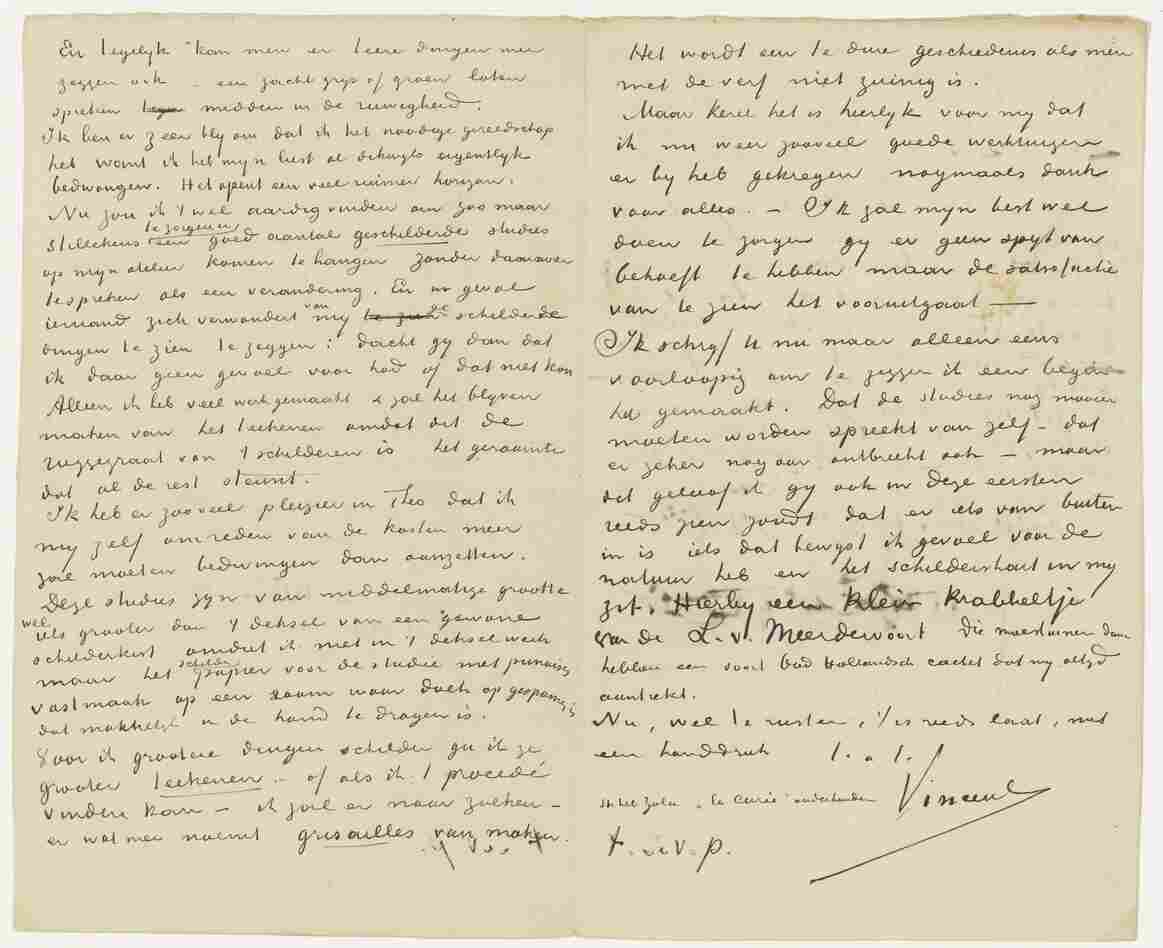 En tegelijk kan men er teere dingen mee
zeggen ook – een zacht grijs of groen laten
spreken midden in de ruwegheid.
Ik ben er zeer bly om dat ik het noodige gereedschap
heb want ik heb myn lust al dikwyls eigentlyk
bedwongen. Het opent een veel ruimer horizon.
Nu zou ik 't wel aardig vinden om zoo maar
stillekens te zorgen een goed aantal geschilderde studies
op myn atelier komen te hangen zonder daarover
te spreken als een verandering. En in geval
iemand zich verwondert van my geschilderde
dingen te zien te zeggen: dacht gy dan dat
ik daar geen gevoel voor had of dat niet kon
Alleen ik heb veel werk gemaakt & zal het blyven
maken van het teekenen omdat dit de
ruggegraat van 't schilderen is het geraamte
dat al de rest steunt.
Ik heb er zooveel pleizier in Theo dat ik
my zelf om reden van de kosten meer
zal moeten bedwingen dan aanzetten.
Deze studies zyn van middelmatige grootte
wel iets grooter dan 't deksel van een gewone
schilderkist omdat ik niet in 't deksel werk
maar het schilder papier voor de studie met punaises
vastmaak op een raam waar doek op gespannen is
dat makkelyk in de hand te dragen is.
Voor ik grootere dingen schilder ga ik ze
grooter teekenen – of als ik 't procedé
vinden kan – ik zal er naar zoeken –
er wat men noemt grisailles van maken.
Het wordt een te dure geschiedenis als men
met de verf niet zuinig is.
Maar kerel het is heerlyk voor my dat
ik nu weer zooveel goede werktuigen
er by heb gekregen nogmaals dank
voor alles. – Ik zal myn best wel
doen te zorgen gy er geen spyt van
behoeft te hebben maar de satisfactie
van te zien het vooruitgaat —
Ik schryf U nu maar alleen eens
voorloopig om te zeggen ik een begin
heb gemaakt. Dat de studies nog mooier
moeten worden spreekt van zelf – dat
er zeker nog aan ontbreekt ook – maar
dit geloof ik gy ook in deze eersten
reeds zien zoudt dat er iets van buiten
in is iets dat bewyst ik gevoel voor de
natuur heb en het schildershart in my
zit. Hierby een klein krabbeltje
van de L. v. Meerdervoort die moestuinen daar
hebben een soort Oud Hollandsch cachet dat my altyd
aantrekt.
Nu, wel te rusten, 't is reeds laat, met
een handdruk t. a. t.
Vincent
Zola „la Curée”
t. s. v. p.